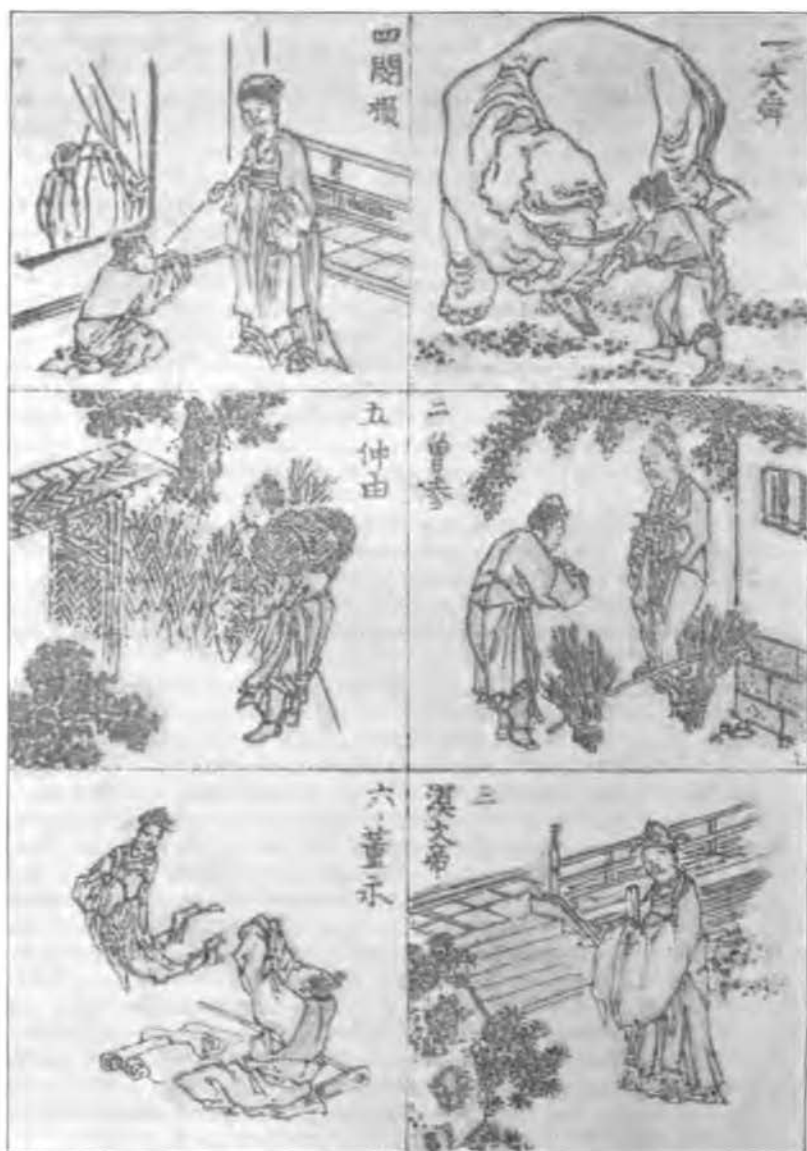 一大舜
二曾參
三漢文帝
四閔損
五仲由
六董永